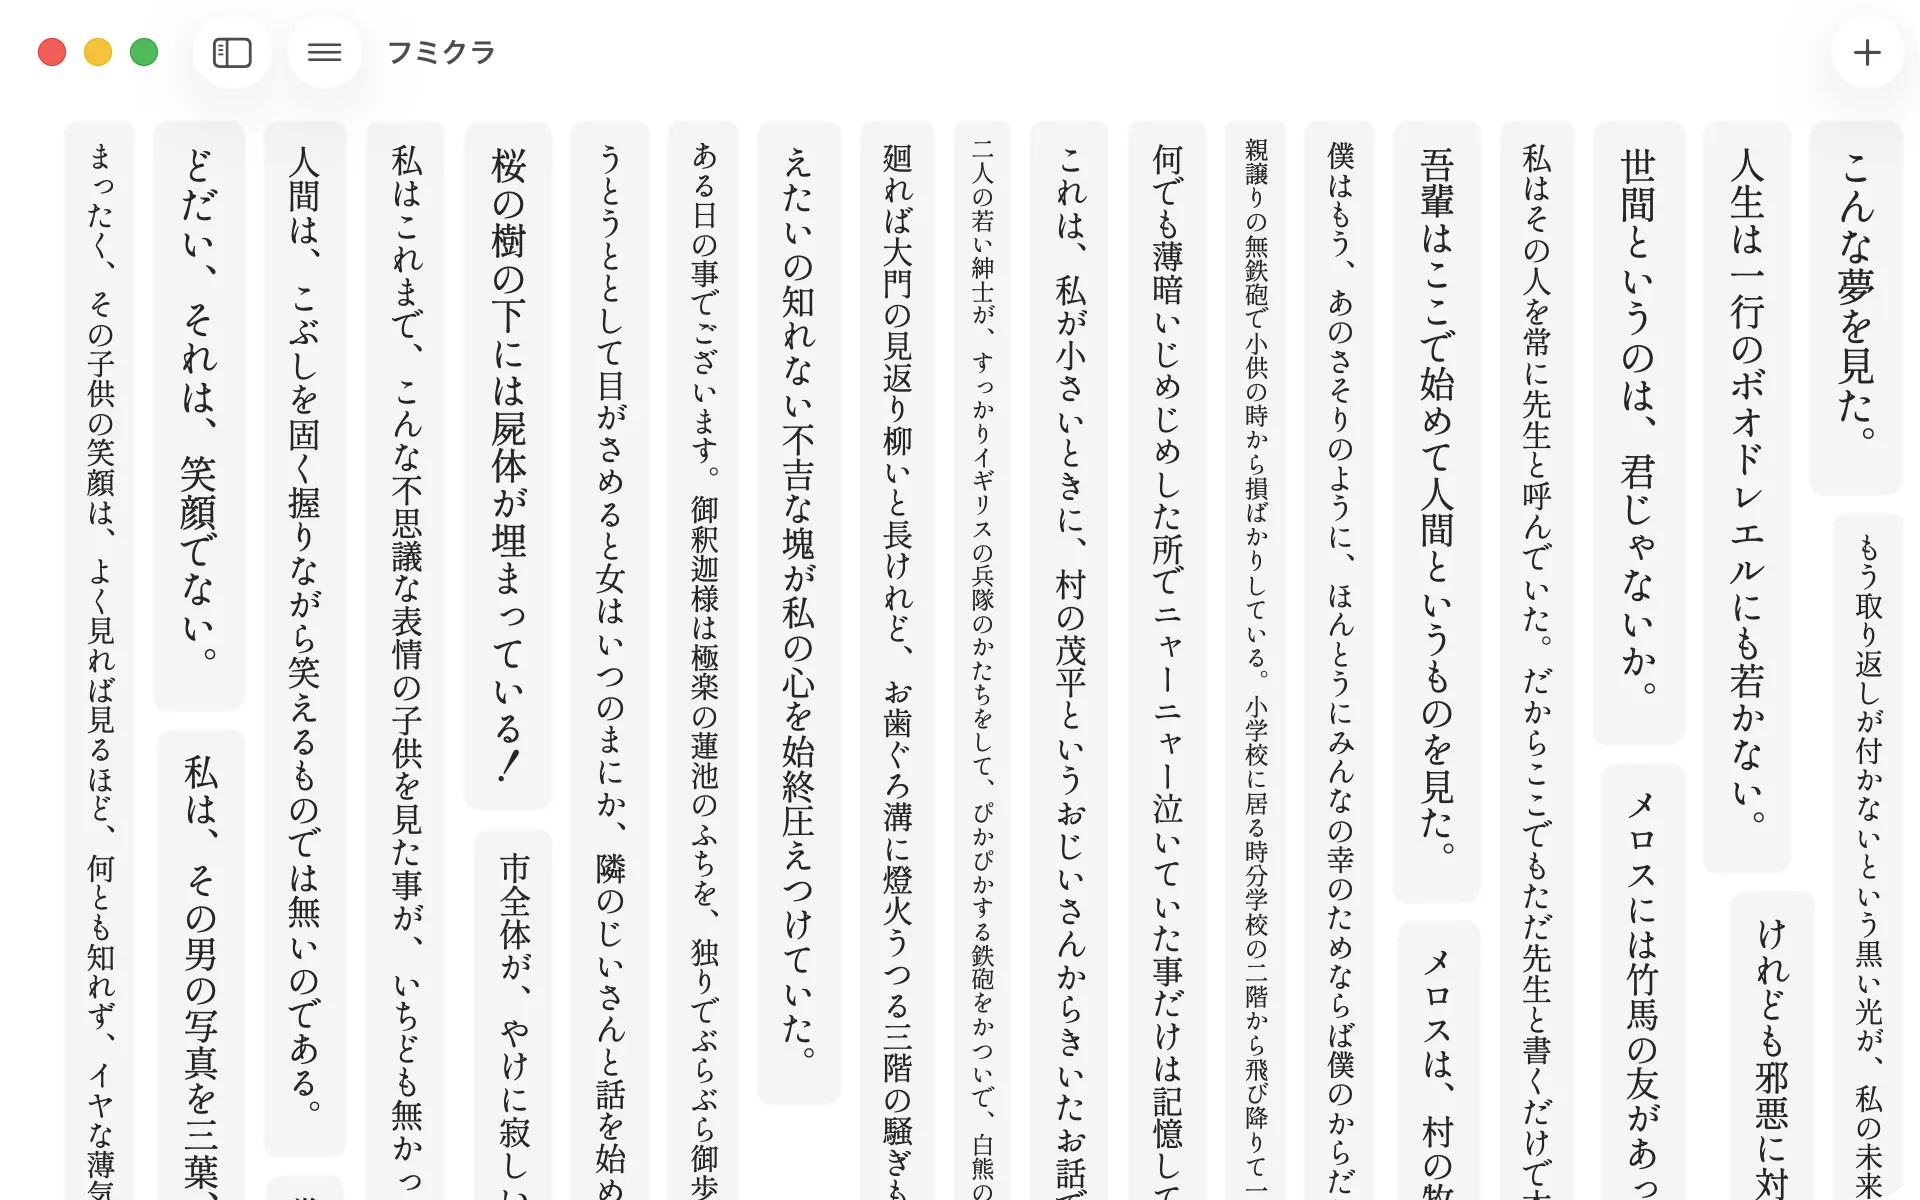 フミクラ
こんな夢を見た。
もう取り返しが付かないという黒い光が、私の未来
人生は一行のボオドレエルにも若かない。
けれども邪悪に対
世間というのは、君じゃないか。
メロスには竹馬の友があっ
私はその人を常に先生と呼んでいた。だからここでもただ先生と書くだけで本
吾輩はここで始めて人間というものを見た。
メロスは、村の牧
僕はもう、あのさそりのように、ほんとうにみんなの幸のためならば僕のからだ
親譲りの無鉄砲で小供の時から損ばかりしている。小学校に居る時分学校の二階から飛び降りて一
何でも薄暗いじめじめした所でニャーニャー泣いていた事だけは記憶して
これは、私が小さいときに、村の茂平というおじいさんからきいたお話で
二人の若い紳士が、すっかりイギリスの兵隊のかたちをして、ぴかぴかする鉄砲をかついで、白熊の
廻れば大門の見返り柳いと長けれど、お歯ぐろ溝に燈火うつる三階の騒ぎも
えたいの知れない不吉な塊が私の心を始終圧えつけていた。
ある日の事でございます。御釈迦様は極楽の蓮池のふちを、独りでぶらぶら御歩
うとうととして目がさめると女はいつのまにか、隣のじいさんと話を始め
桜の樹の下には屍体が埋まっている！
市全体が、やけに寂しい
私はこれまで、こんな不思議な表情の子供を見た事が、いちども無かっ
人間は、こぶしを固く握りながら笑えるものでは無いのである。
どだい、それは、笑顔でない。
私は、その男の写真を三葉、
まったく、その子供の笑顔は、よく見れば見るほど、何とも知れず、イヤな薄気